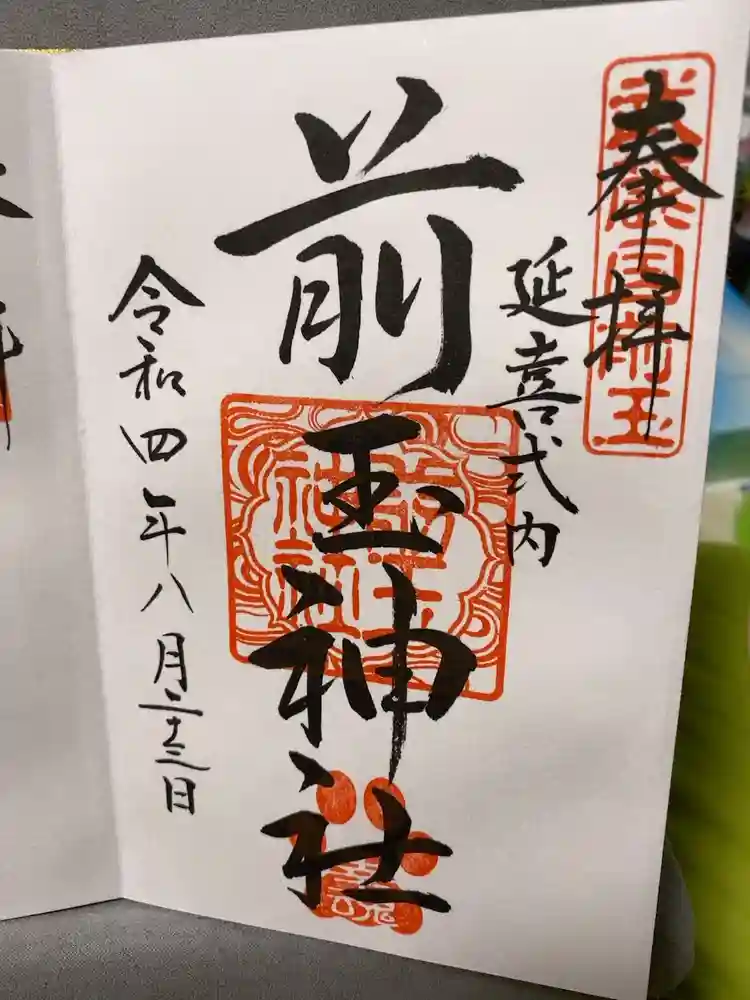 奉拝
武蔵国前玉
延喜式内
前玉神社
前玉
神社
幸魂
令和四年八月二十三日